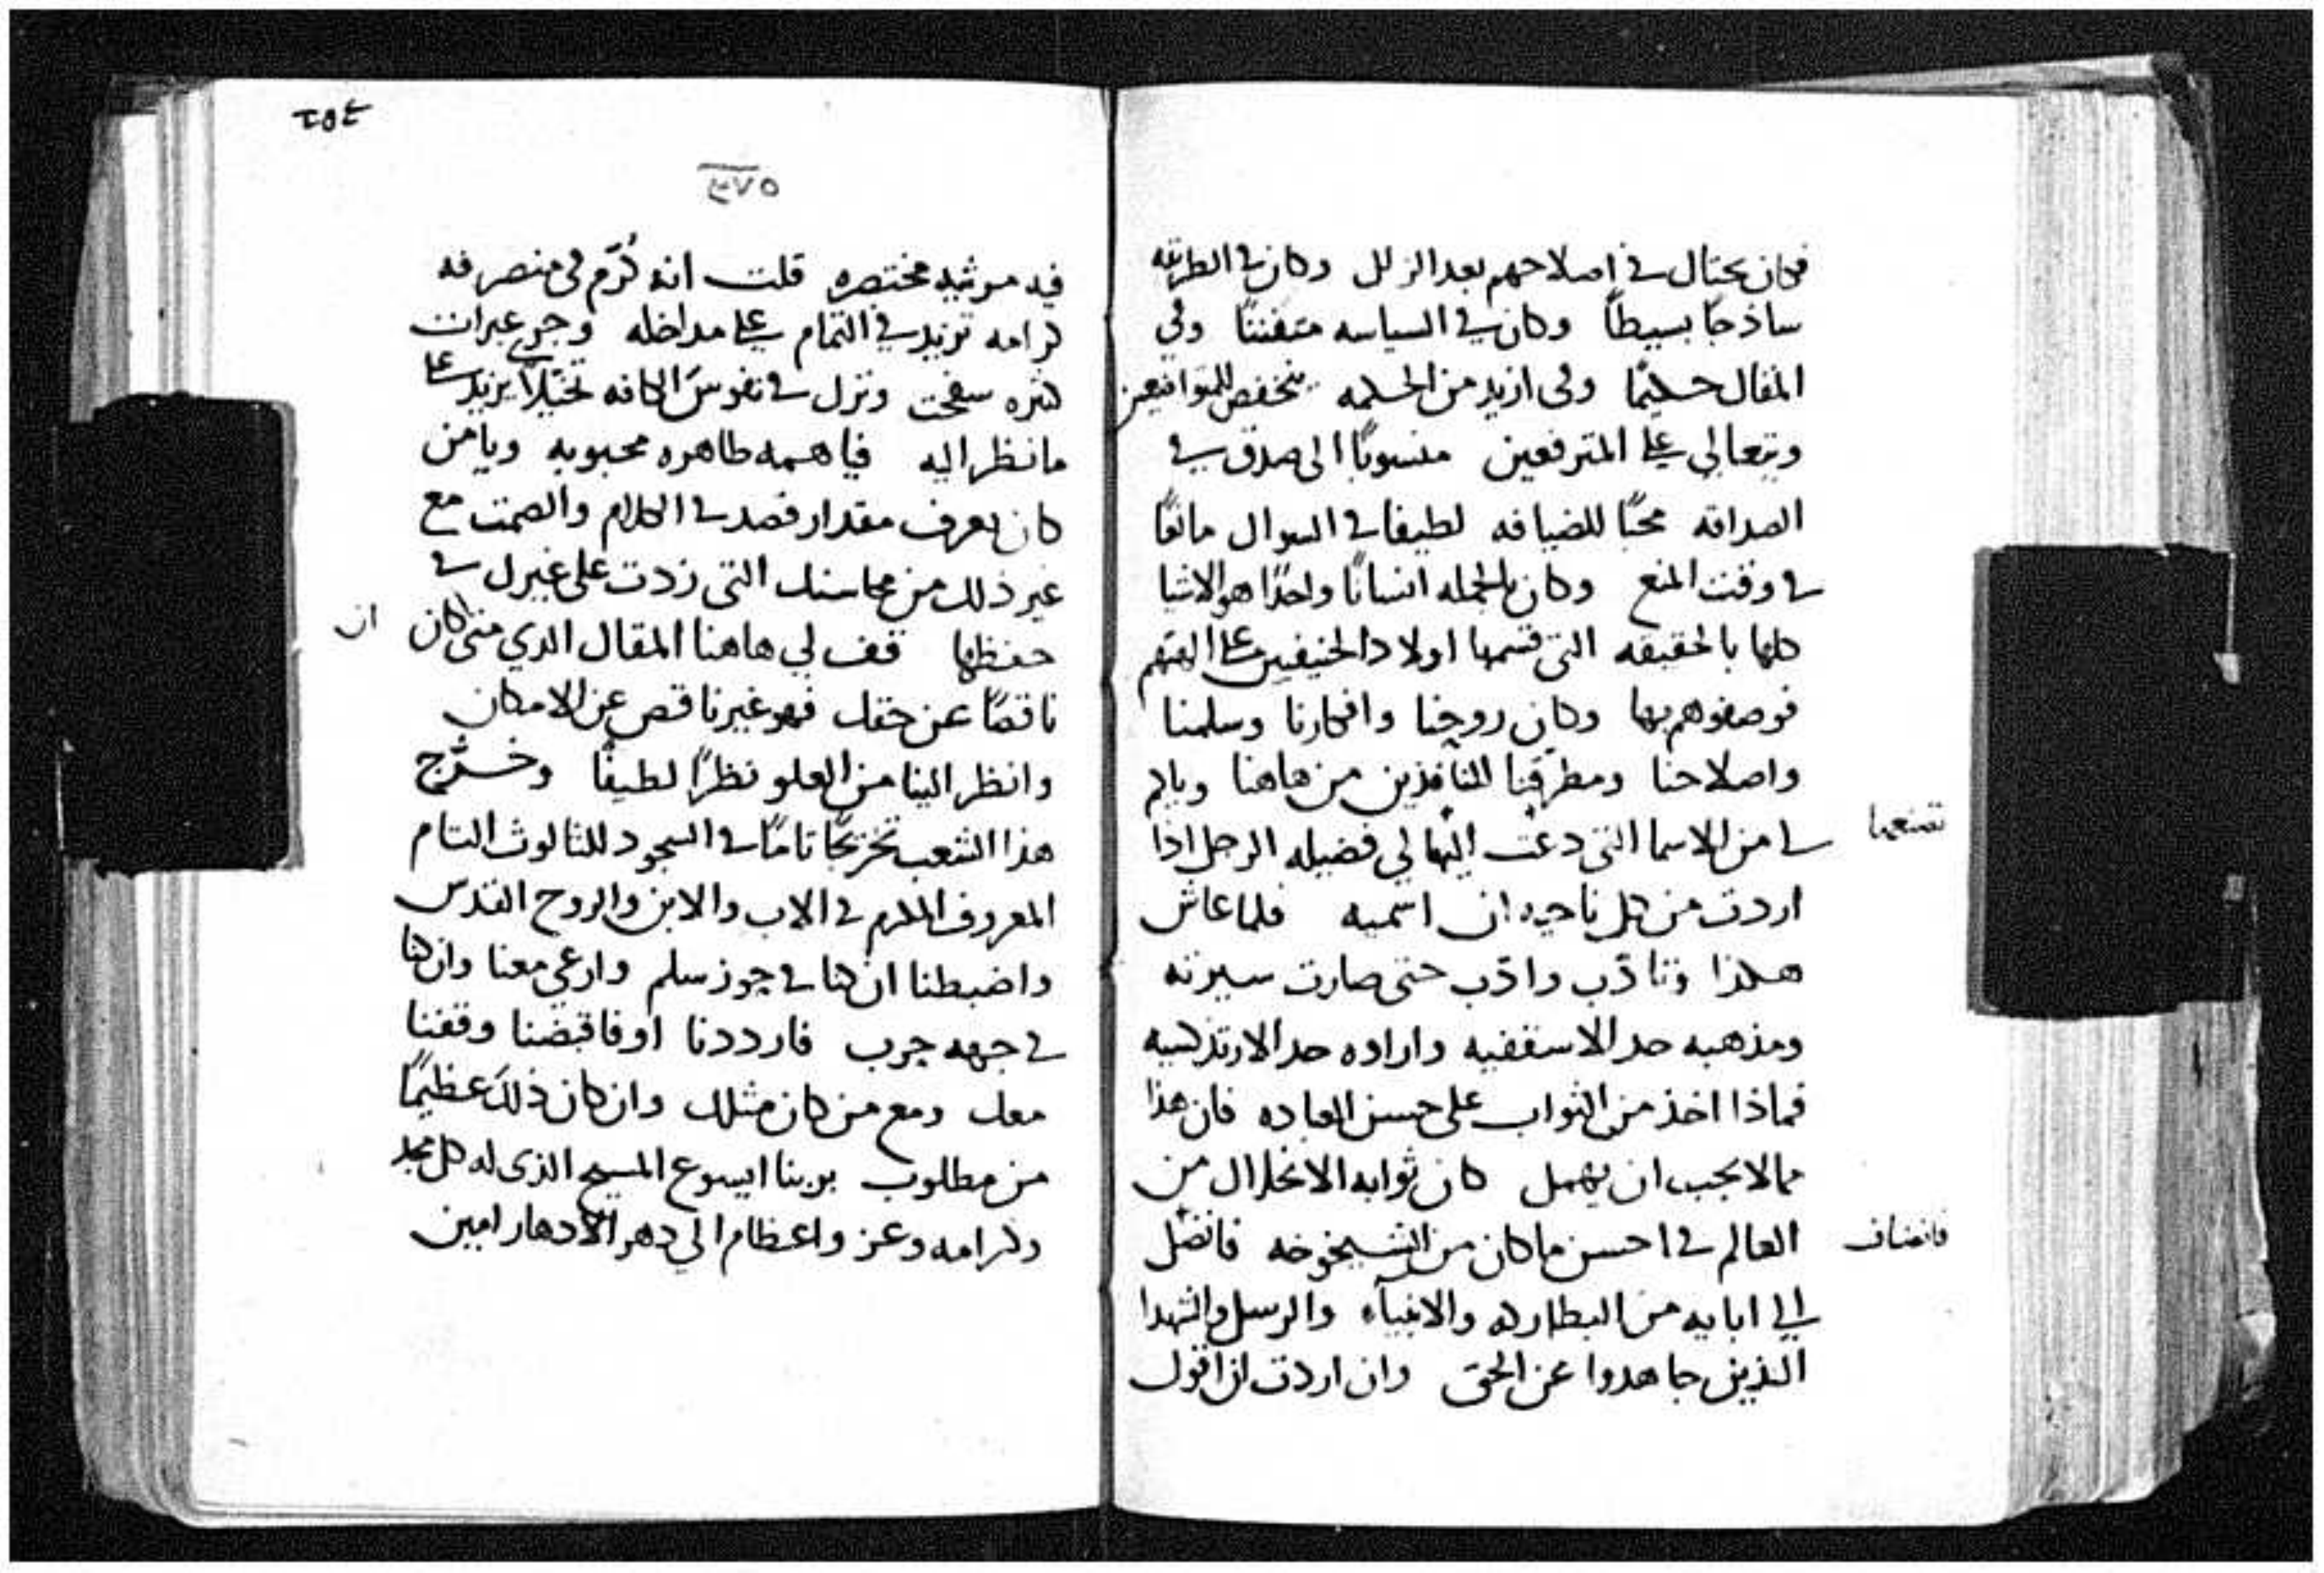 فكان يحتال في اصلاحهم بعد الزلل وكان في الطريقه
ساذجًا بسيطًا وكان في السياسه متفننًا وفي
المقال حكيمًا وفي ازيد من الحكمه ينخفض للمتواضعين
ويتعالي على المترفعين منسوبًا الى صدق في
الصداقه محبًا للضيافه لطيفا في السوال مانعًا
في وقت المنع وكان بالجمله انسانًا واحدًا هو الاشيا
كلها بالحقيقه التي قسمها اولاد الحنيفين على الهتهم
فوصفوهم بها وكان روحنا وافكارنا وسلمنا
واصلاحنا ومطرقنا النافذين من هاهنا ويا لم
في من الاسما التي دعت اليها لي فضيله الرجل اذا
تصنعها
اردت من كل ناحيه ان اسميه فلما عاش
هكذا وتادّب وادّب حتى صارت سيرته
ومذهبه حد الاسقفيه واراوه حد الارتدكسيه
فماذا اخذ من الثواب على حسن العباده فان هذا
مما لا يجب ان يهمل كان ثوابه الانحلال من
العالم في احسن ما كان من الشيخوخه فانضل
فانضاف
الي ابايه من البطاركه والانبياء والرسل والشهدا
الذين جاهدوا عن الحق وان اردت ان اقول
٢٥٤
٣٧٥
فيه مرثيه مختصره قلت انه كُرّم في منصرفه
كرامه تزيد في التمام على مداخله وجرى عبرات
كثره سفحت ونزل في نفوس الكافه تخيّلًا يزيد على
ما نظر اليه فيا همه طاهره محبوبه ويا من
كان يعرف مقدار قصد في الكلام والصمت مع
غير ذلك من محاسنك التي زدت على غيرك في
حفظها قف لي هاهنا المقال الدي متى كان
ان
ناقصًا عن حقك فهو غير ناقص عن الامكان
وانظر الينا من العلو نظرًا لطيفًا وخرّج
هذا الشعب تخريجًا تامًا في السجود للثالوث التام
المعروف المكرم في الاب والابن والروح القدس
واضبطنا ان كنا في جوز سلم وارعي معنا وان كنا
في جهه حرب فارددنا اوفاقبضنا وقفنا
معك ومع من كان مثلك وان كان ذلك عظيمًا
من مطلوب بربنا ايسوع المسيح الذى له كل مجد
وكرامه وعز واعظام الي دهر الادهار امين